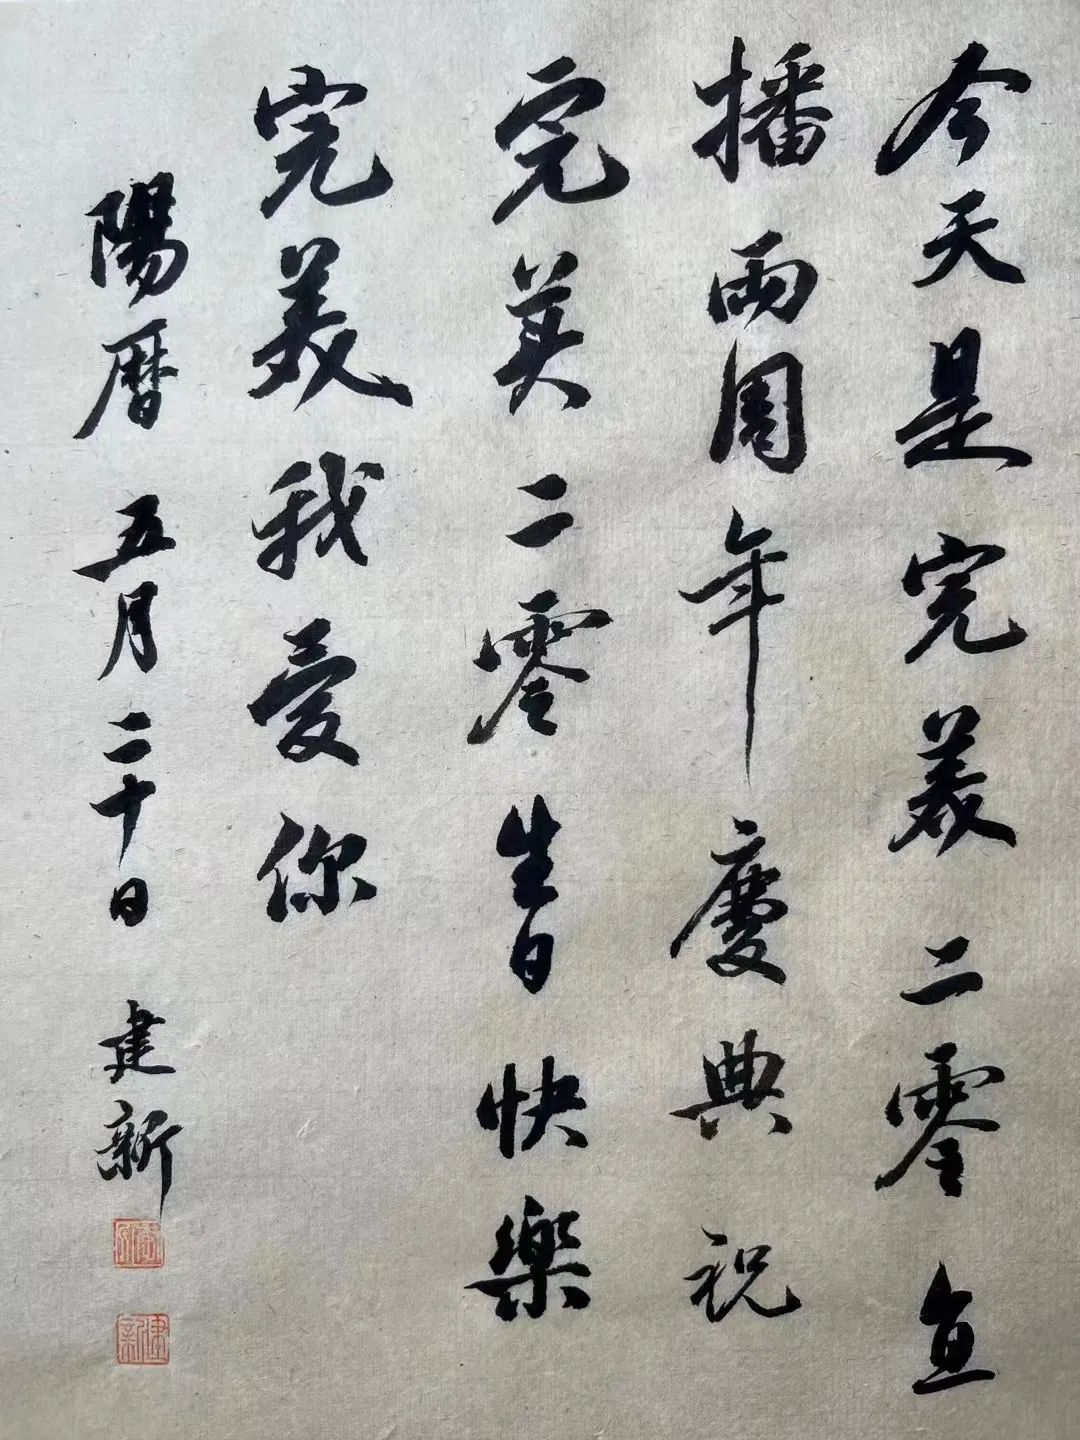 今天是完美二零直
播兩周年慶典祝
完美二零生日快樂
完美我爱你
陽曆五月二十日建新
建新